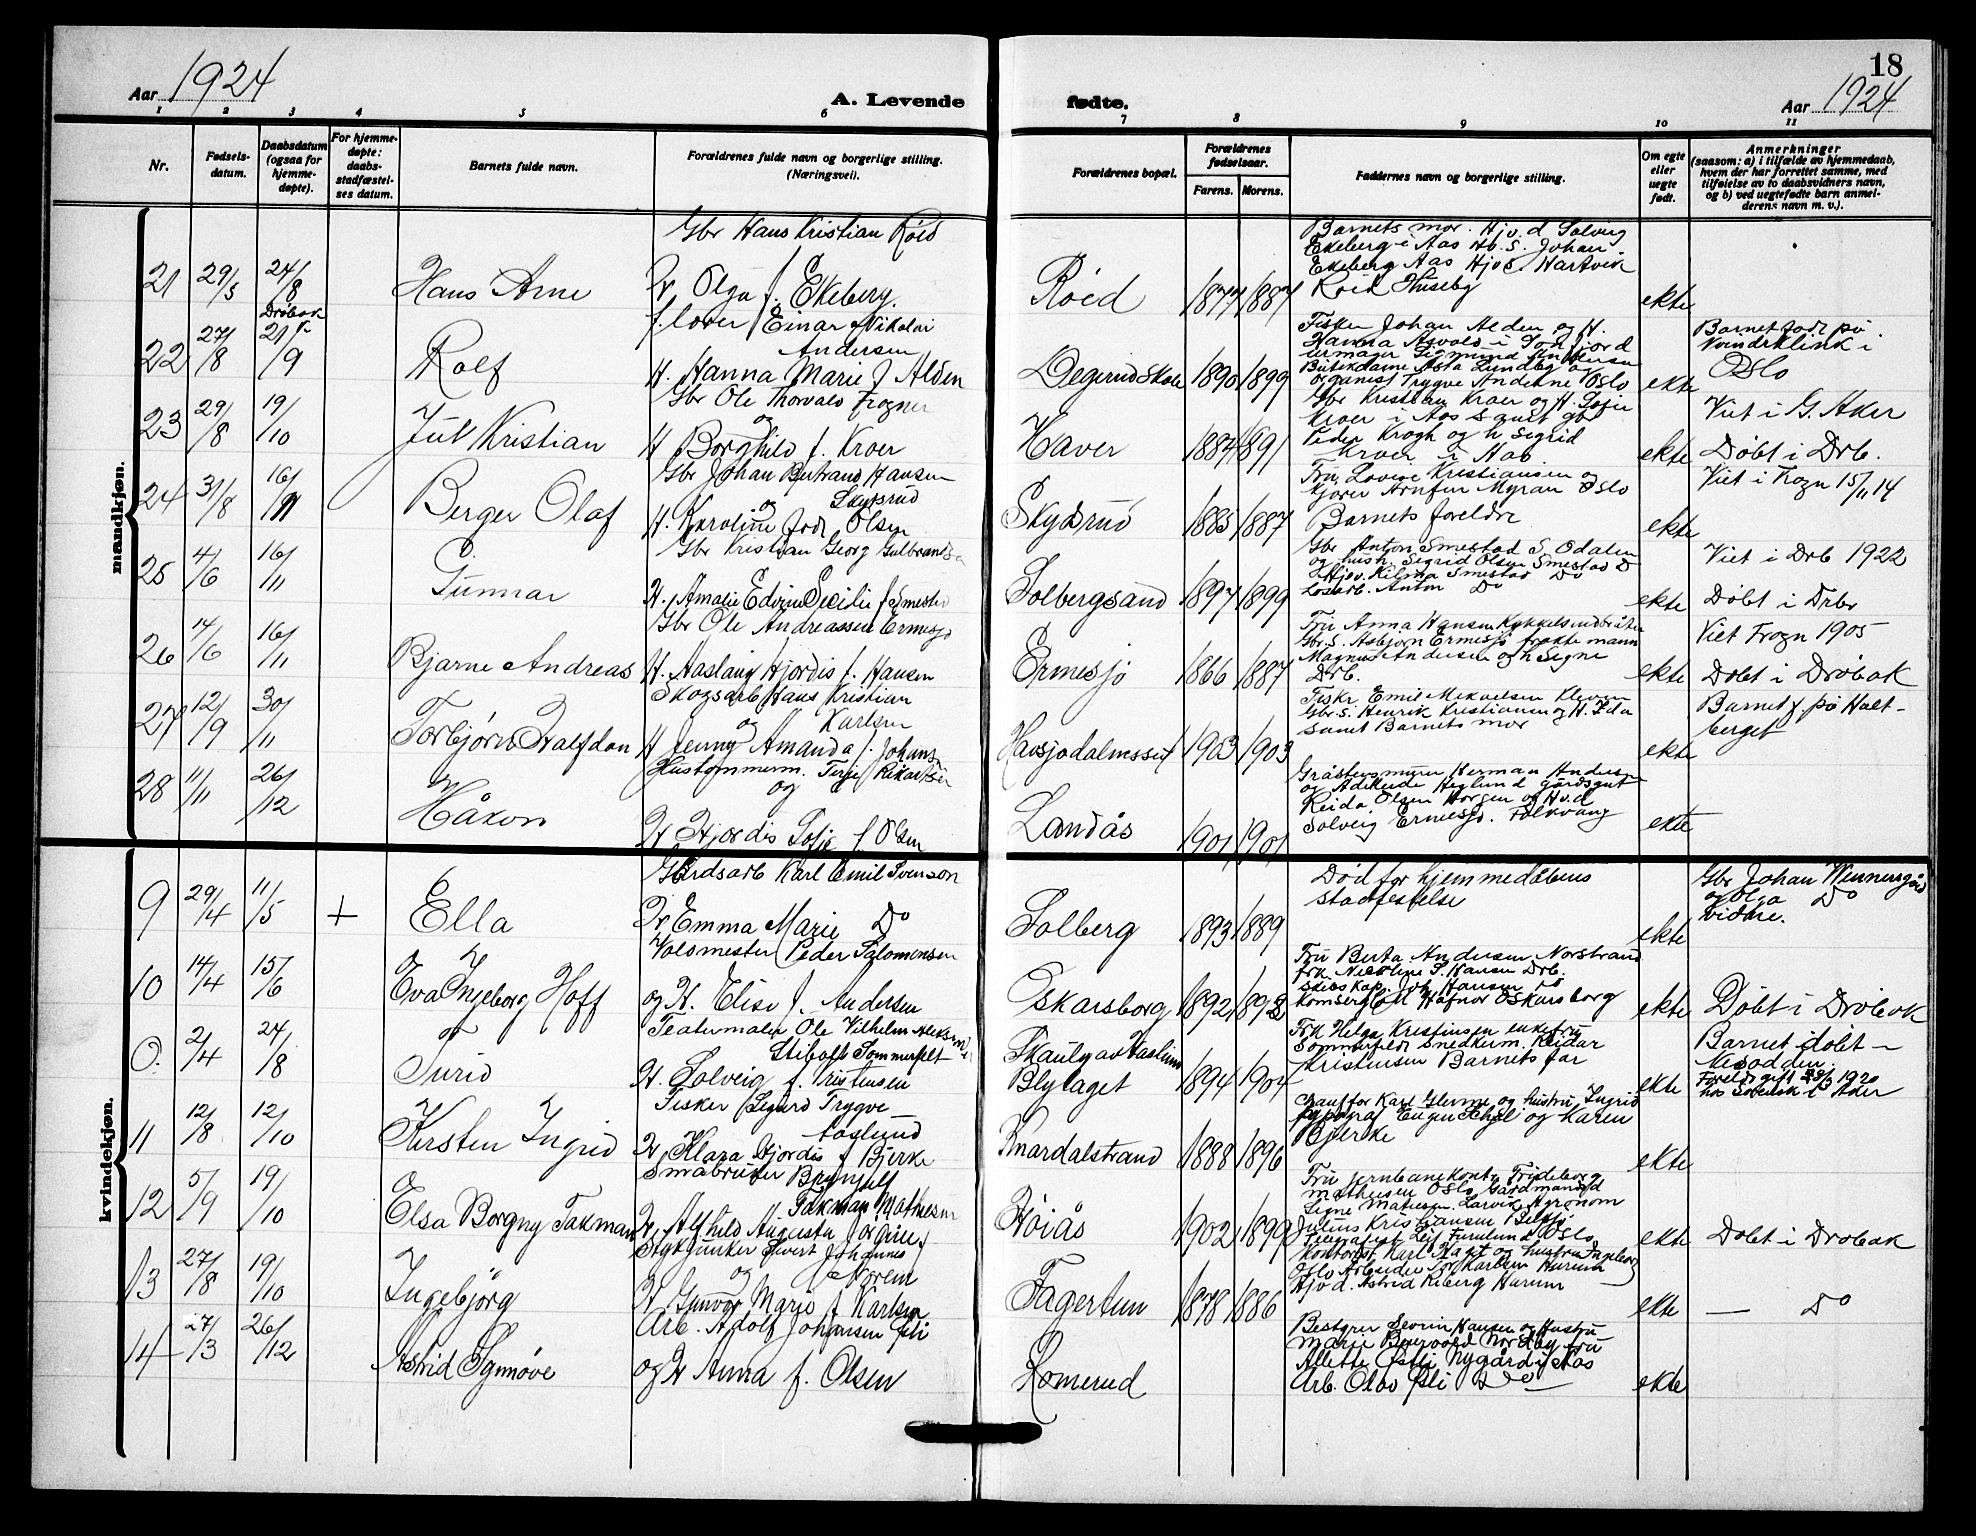 18
Aar 1924
A. Levende
fødte.
Aar 1924
1 2 3 4 5 6 7 8 9 10 11
Nr.
Fødsels-
datum.
Daabsdatum
(ogsaa for
hjemme-
døpte).
For hjemme-
døpte:
daabs-
stadfæstel-
ses datum.
Barnets fulde navn.
Forældrenes fulde navn og borgerlige stilling.
(Næringsvei).
Forældrenes bopæl.
Forældrenes
fødselsaar.
Farens. Morens.
Faddernes navn og borgerlige stilling.
Om egte
eller
uegte
født.
Anmerkninger
(saasom: a) i tilfælde av hjemmedaab,
hvem der har forrettet samme, med
tilføielse av to daabsvidners navn,
og b) ved uegtefødte barn anmel-
derens navn m. v.).
mandkjøn.
21 29/5 24/8 Hans Arne
Gbr Hans Kristian Röed
Olga f. Ekeberg.
Röed 1877 1887
Barnets mor. Hjv. d Solveig
Ekeberg i Aas Gb. S. Johan
Ekeberg Aas Hartvik
Röed Huseby
ekte
22 27/8 Dröbak 21/9 Rolf
f. lærer Einar Nikolai
Andersen
H. Hanna Marie f Alden
Degerud Skole 1890 1899
Fisker Johan Alden og H.
Hanna i Sogn fjord
urmager Sigmund Andersen
Asta Lundby og
organist Trygve Oslo
ekte
Barnet født på
Kvindeklinik i
Oslo
23 29/8 19/10 Jul Kristian
Gbr Ole Thorvald Frogner
og
H Borghild f. Kroer
Haver 1884 1891
Gbr Kristian Kroer og H. Sofie
Kroer i Aas samt gbr
Peder Krogh og h Sigrid
Kroer i Aas
ekte
Viet i G. Aker
Döbt i Drb.
24 31/8 16/11 Berger Olaf
Gbr Johan Bertrand Hansen
og Skydsrud
H. Karoline född Olsen
Skydsrud 1885 1887
Fru Lovise Kristiansen og
Arnfin Myran Oslo
Barnets foreldre
ekte
Viet i Frogn 15/11 14
25 4/6 16/11 Gunnar
Gbr Kristian Georg Gulbrandsen
H. Amalie Edvine Secilie f Smestad
Solbergsand 1897 1899
Gbr Anton Smestad S. Odalen
og hush. Sigrid Olsen Smestad Do
Hjv. Hilma Smestad Do
Løsarb. Anton Do
ekte
Viet i Drb 1922
Döbt i Drbr
26 14/6 16/11 Bjarne Andreas
Gbr Ole Andreassen Ermesjö
H. Aaslaug Hjördis f. Hansen
Ermesjö 1866 1887
Fru Anna Hansen
Gbr. S. Asbjörn Ermesjö
Magnus Andersen og h Signe
Drb.
ekte
Viet Frogn 1905
Döbt i Dröbak
27 12/9 30/11 Torbjörn Halfdan
Skogsarb Hans Kristian
og Karlsen
H Jenny Amanda f. Johans
1903 1903
Fiskr Emil Mikaelsen Kleven
Gbr. S. Henrik Kristiansen og H. Ida
samt Barnets mor
ekte
Barnet f. på Holt-
berget
28 11/11 26/12 Håkon
Hustömmerm. Terje Rikardsen
og
Hjördis Sofie f. Olsen
Landås 1901 1901
Herman Andersen
og Adelheide Heglund gårdsgut
Reidar Olsen Horgen og Hv. d
Solveig Ermesjö. Folkvang
ekte
kvindekjøn.
9 29/4 11/5 + Ella
Gårdsarb Karl Emil Svenson
Emma Marie Do
Solberg 1893 1889
Död för hjemmedåbens
stadfestelse
ekte
Gbr Johan Wennersgård
og Olga Do
vidne.
10 14/4 15/6 Eva Ingeborg Hoff
Voldmester Peder Salomonsen
og H. Elise f. Andersen
Oskarsborg 1892 1893
Fru Berta Andersen Norstrand
frk Nicoline S. Hansen Drb.
Joh. Hansen Do
Oskarsborg
ekte
Döbt i Dröbak
0. 2/4 24/8 Turid
Teatermaler Ole Vilhelm
Stibolt Sommerfelt
H. Solveig f. Kristensen
Blylaget 1894 1904
Frk Helga Kristensen enkefru
Sommerfeldt Reidar
Kristensen Barnets far
ekte
Barnet döbt —
Nesodden
11 12/8 12/10 Kirsten Ingrid
Fisker Sigurd Trygve
Aaslund
H Klara Hjördis f Bjerke
Knardalstrand 1888 1896
Chauffør Karl og hustru Ingrid
og Karen
Bjerke
ekte
12 5/9 19/10 Elsa Borgny Takman
Småbruker Brynjulf
Takman Mathesen
Alfhild Augusta
Höiås 1902 1899
Fru jernbanekont. Frideborg
Mathesen Oslo
Signe Larvik Agronom
Julius Kristiansen
Telegrafist Leif Furulund Oslo
ekte
Döbt i Dröbak
13 27/8 19/10 Ingebjörg
Stykjunker Sivert Johannes
og Norem
H. Gunvor Marie f Karlsen
Fagertun 1878 1886
Kontorist Karl og hustru Ingeborg
Oslo Arbeider Tor Karlsen Hurum
Hjv d. Astrid Hurum
ekte
— Do
14 27/3 26/12 Astrid Synnöve
Arb. Adolf Johansen
og H Anna f. Olsen
Romerud
Severin Hansen og Hustru
Marie Nordby fru
Allette Nygård i Aas
Arb. Do —
ekte